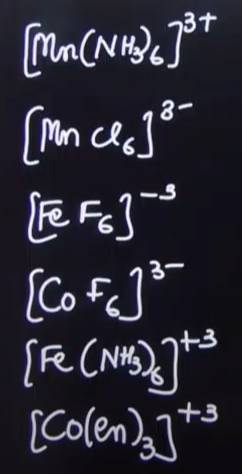 [Mn(NH3)6]³⁺
[Mn Cl6]³⁻
[Fe F6]⁻³
[Co F6]³⁻
[Fe (NH3)6]⁺³
[Co(en)3]⁺³